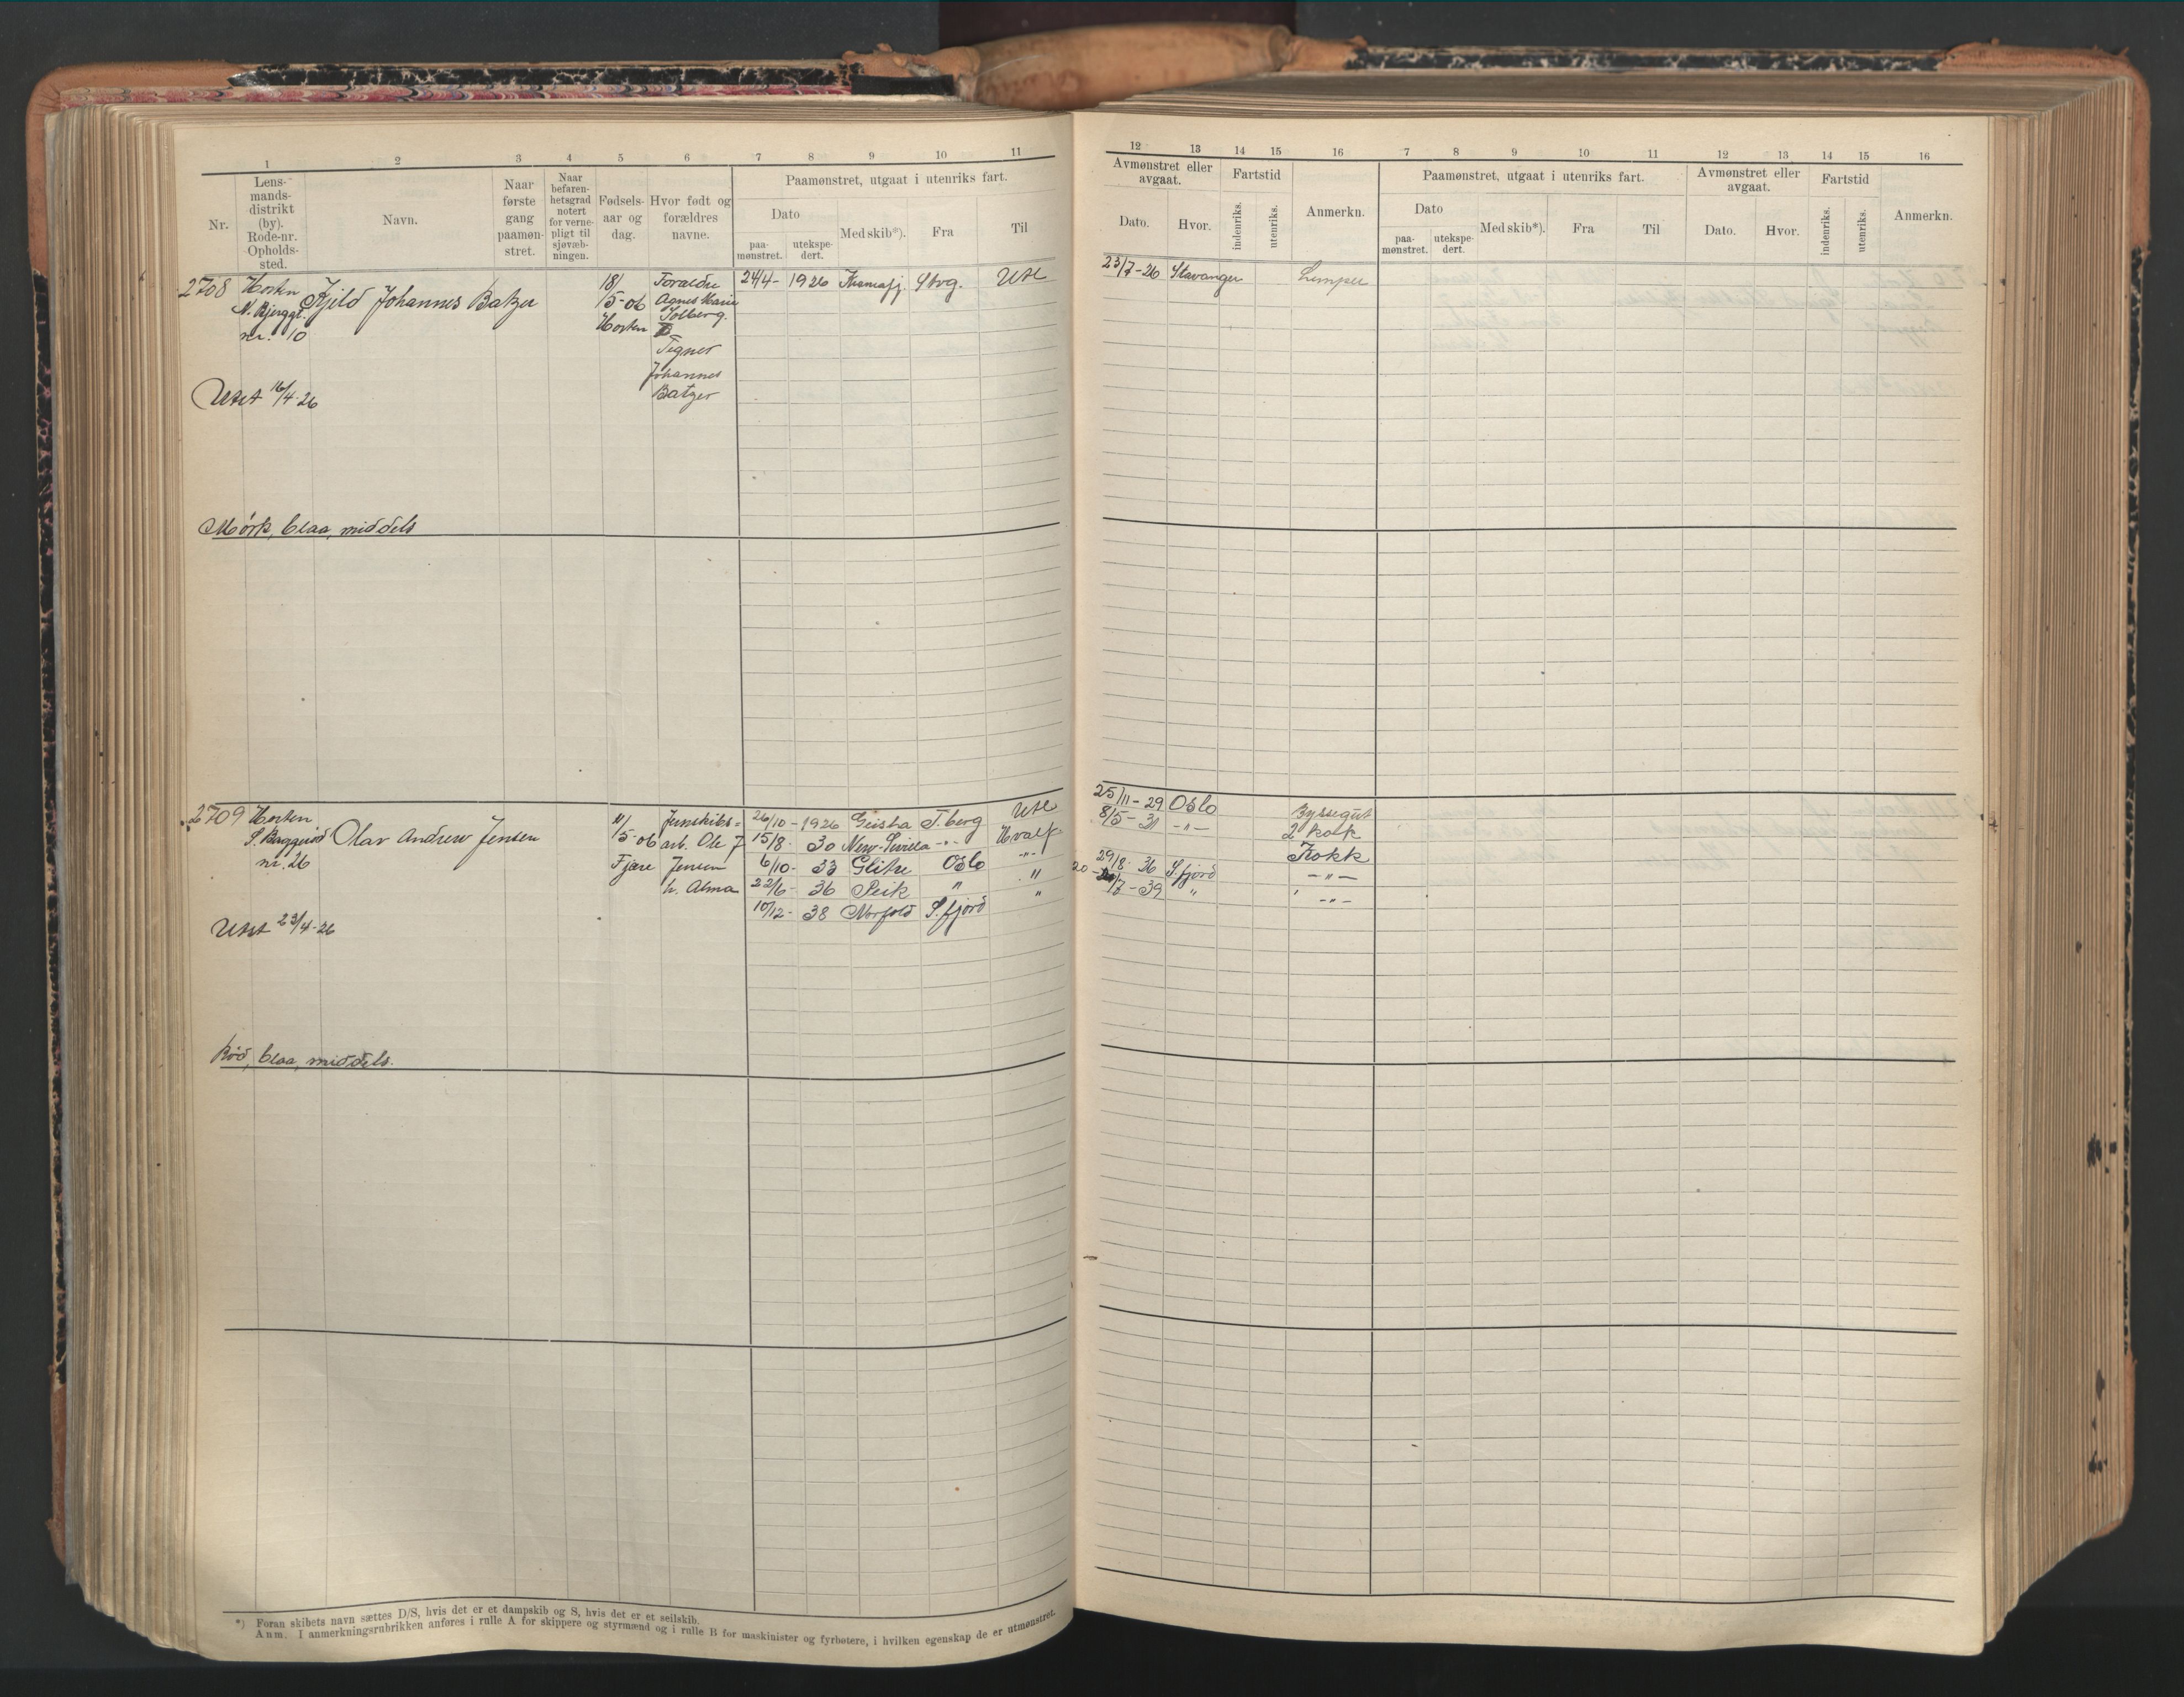 1 2 3 4 5 6 7 8 9 10 11
Nr.
Lens-
mands-
distrikt
(by).
Rode-nr.
Opholds-
sted.
Navn.
Naar
første
gang
paamøn-
stret.
Naar
befaren-
hetsgrad
notert
for verne-
pligt til
sjøvæb-
ningen.
Fødsels-
aar og
dag.
Hvor født og
forældres
navne.
Paamønstret, utgaat i utenriks fart.
Dato
paa-
mønstret.
utekspe-
dert.
Med skib*).
Fra
Til
2708 Horten Kjeld Johannes Batzer 18/ Foraldre 24/4- 1926 Stvg. Utl
N. Bjerggt. 5-06 Agnes Marie
nr. 10 Horten Solberg.
Tegner
Johannes
Batzer
Utst 16/4-26
Mörk, blaa, middels
2709 Horten Olav Andrew Jensen 11/ Jernskibs= 26/10-1926 Geisha T.berg Utl
nr. 26 5-06 arb. Ole J 15/8- 30 -"- Hvalf
Fjære Jensen 6/10- 33 Glitre Oslo -"-
h. Alma 22/6- 36 Peik " "
10/12- 38 Norfold S.fjord "
Utst 23/4-26
Rød, blaa, middels.
*) Foran skibets navn sættes D/S, hvis det er et dampskib og S, hvis det er et seilskib.
Anm. I anmerkningsrubrikken anføres i rulle A for skippere og styrmænd og i rulle B for maskinister og fyrbøtere, i hvilken egenskap de er utmønstret.
12 13 14 15 16 7 8 9 10 11 12 13 14 15 16
Avmønstret eller
avgaat.
Dato.
Hvor.
Fartstid
indenriks.
utenriks.
Anmerkn.
Paamønstret, utgaat i utenriks fart.
Dato
paa-
mønstret.
utekspe-
dert.
Med skib*).
Fra
Til
Avmønstret eller
avgaat.
Dato.
Hvor.
Fartstid
indenriks.
utenriks.
Anmerkn.
23/7-26 Stavanger Lemper
25/11-29 Oslo Byssegut
8/5- 31 -"- 2 kokk
Kokk
29/8- 36 S.fjord -"-
20 - /7-39 " -"-